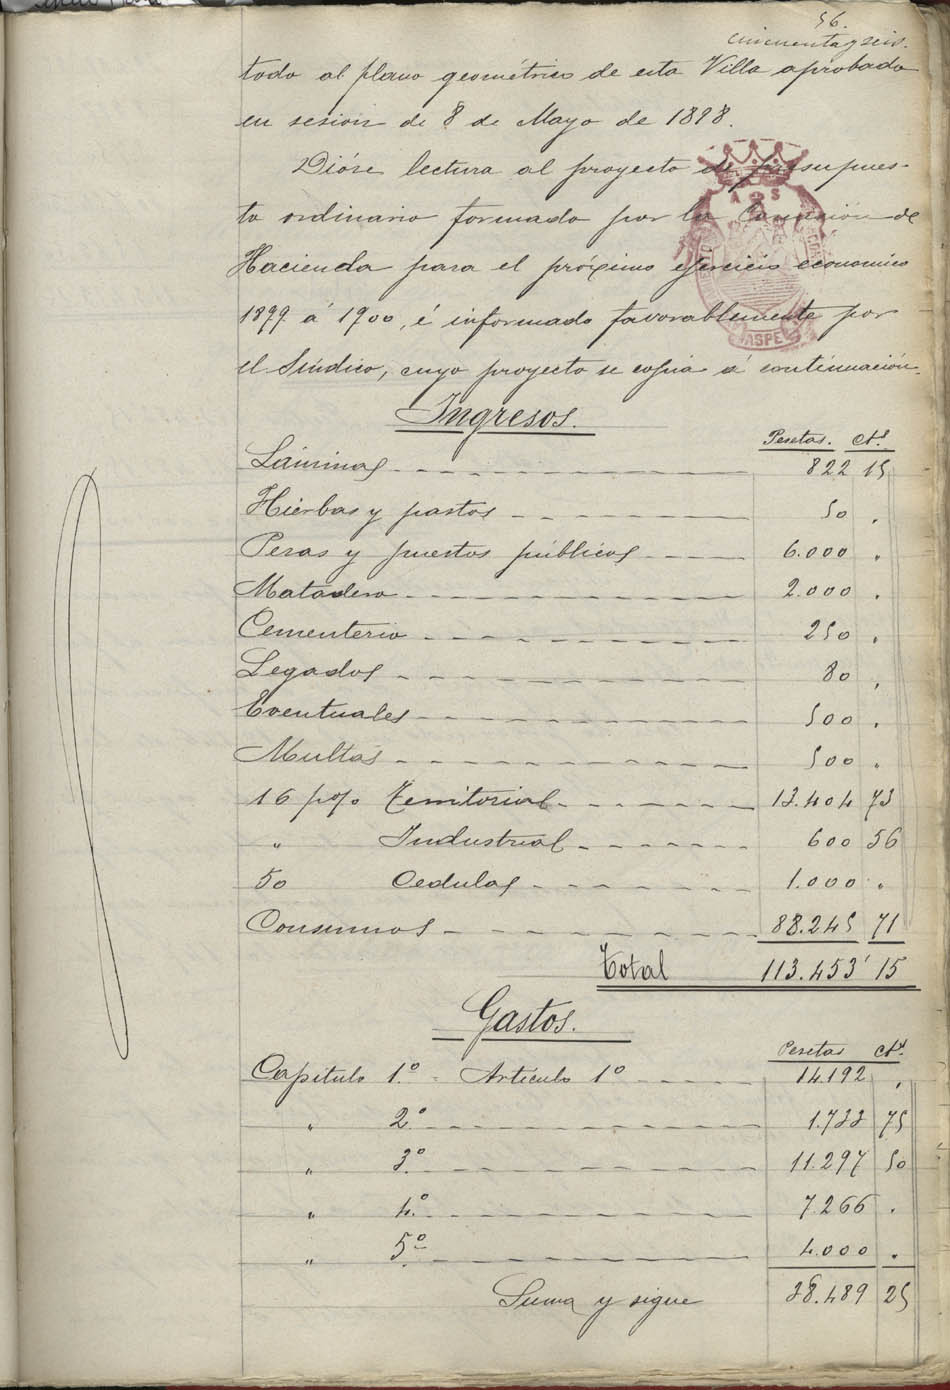 56.
cincuenta y seis.
todo al plano geométrico de esta Villa aprobado
en sesión de 8 de Mayo de 1898.
Dióse lectura al proyecto de presupues-
to ordinario formado por la Comisión de
Hacienda para el próximo ejercicio economico
1899 á 1900, é informado favorablemente por
el Síndico, cuyo proyecto se copia á continuación.
Ingresos.
Pesetas. Cts.
Láminas 822 15
Hierbas y pastos 50 "
Pesas y puestos públicos 6.000 "
Matadero 2.000 "
Cementerio 250 "
Legados 80 "
Eventuales 500 "
Multas 500 "
16 p% Territorial 13.404 73
" Industrial 600 56
50 Cedulas 1.000 "
Consumos 88.245 71
Total 113.453' 15
Gastos.
Pesetas Cts.
Capítulo 1.º - Artículo 1º 14.192 "
" 2.º 1.733 75
" 3.º 11.297 50
" 4.º 7.266 "
" 5.º 4.000 "
Suma y sigue 38.489 25
A S
CASPE